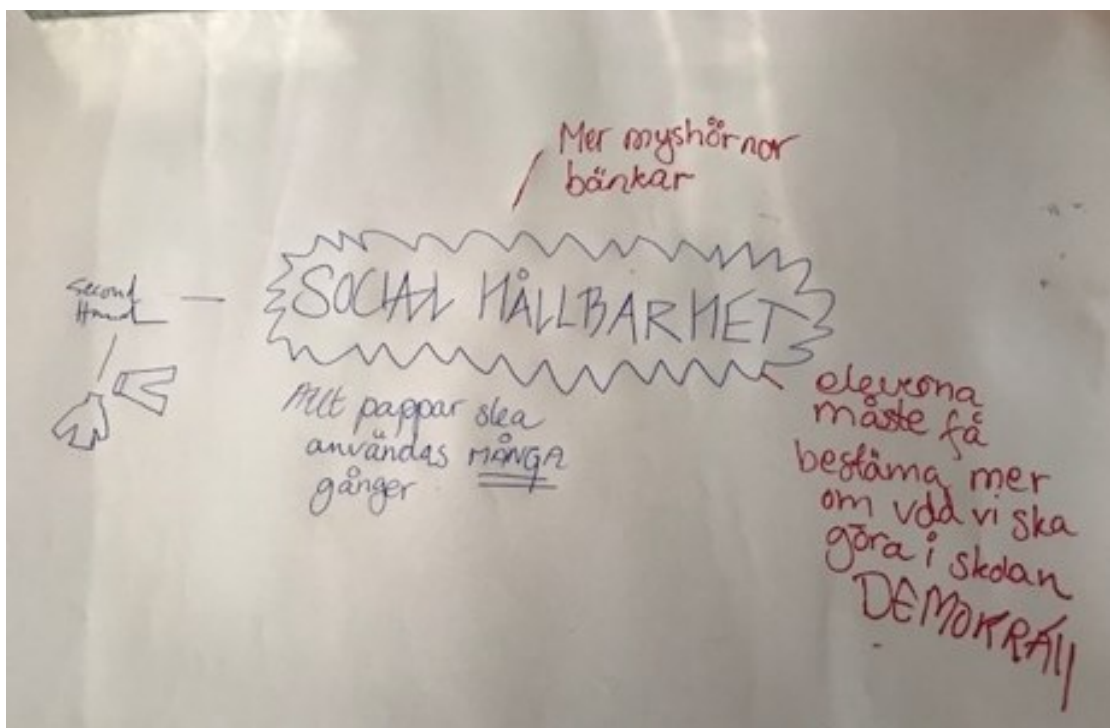 Mer myshörnor
bänkar
Second
Hand
SOCIAL HÅLLBARHET
Allt pappar ska
användas MÅNGA
gånger
eleverna
måste få
bestäma mer
om vdd vi ska
göra i skolan
DEMOKRATI